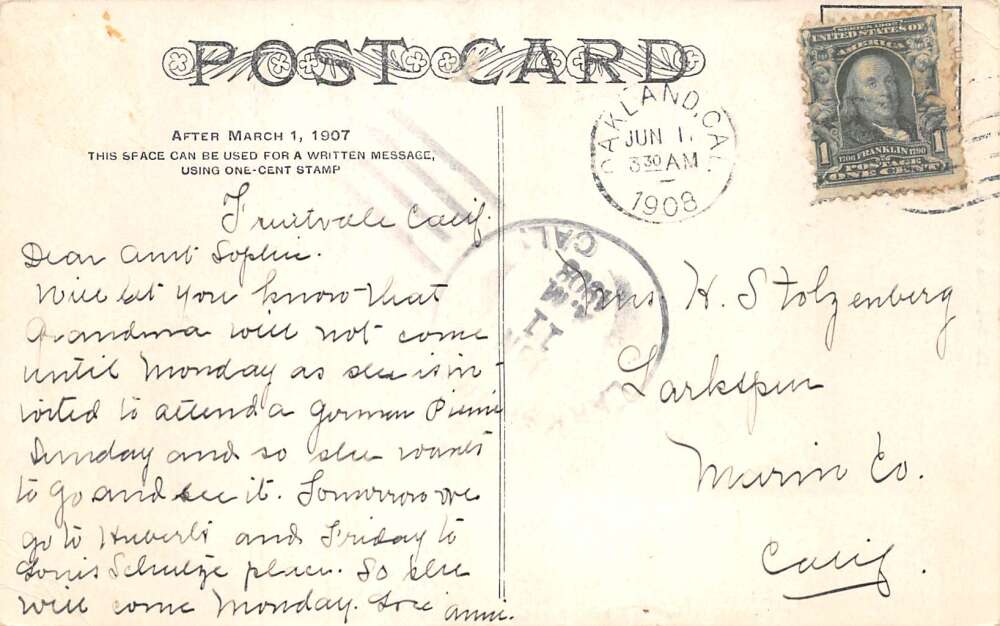 POST CARD
AFTER MARCH 1, 1907
THIS SPACE CAN BE USED FOR A WRITTEN MESSAGE,
USING ONE-CENT STAMP
OAKLAND, CAL.
JUN 1.
3 30 AM
1908
SERIES 1902
UNITED STATES OF
AMERICA
1706 FRANKLIN 1790
1 POSTAGE 1
ONE CENT
CAL.
1908
A.M.
11
Fruitvale Calif.
Dear Aunt Sophie.
Will let you know that
Grandma will not come
until Monday as she is in
vited to attend a German Picnic
Sunday and so she wants
to go and see it. Tomorrow we
go to Huberts and Friday to
Louis Schulze place. So she
will come Monday. Love Anni.
Mrs. H. Stolzenberg
Larkspur
Marin Co.
Calif.